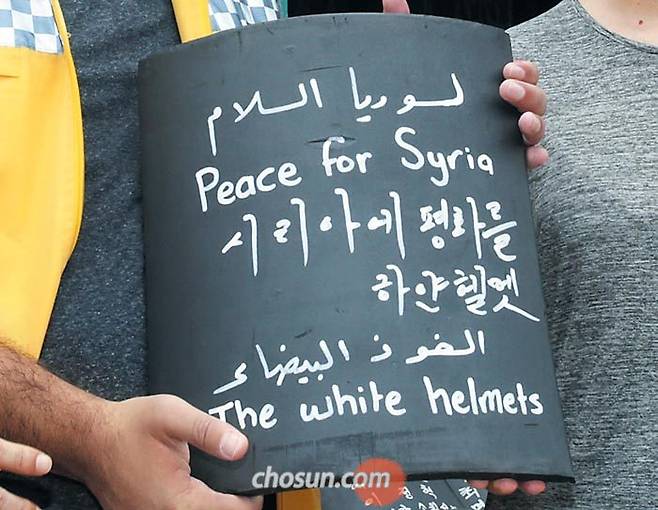 لسوريا السلام
Peace for Syria
시리아에 평화를
하얀헬멧
الخوذ البيضاء
The white helmets
chosun.com